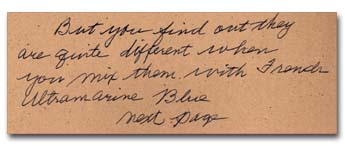 But you find out they
are quite different when
you mix them with French
Ultramarine Blue
next page